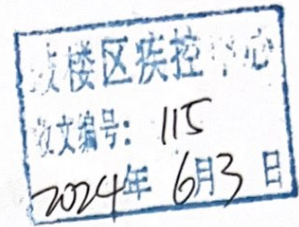 鼓楼区疾控中心
收文编号: 115
2024年 6月3日